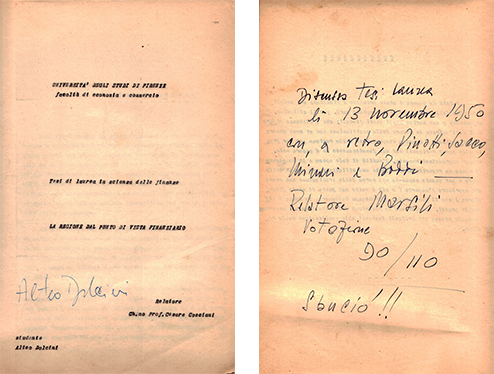 UNIVERSITA' DEGLI STUDI DI FIRENZE
facoltà di economia e commercio
Tesi di laurea in scienza delle finanze
LA REGIONE DAL PUNTO DI VISTA FINANZIARIO
Alteo Dolcini
Relatore
Ch.mo Prof.Cesare Cosciani
studente
Alteo Dolcini
Discussa Tesi Laurea
lì 13 novembre 1950
con, a retro, Pinotti, Sacco,
e
Relatore Marsili
Votazione
90/110